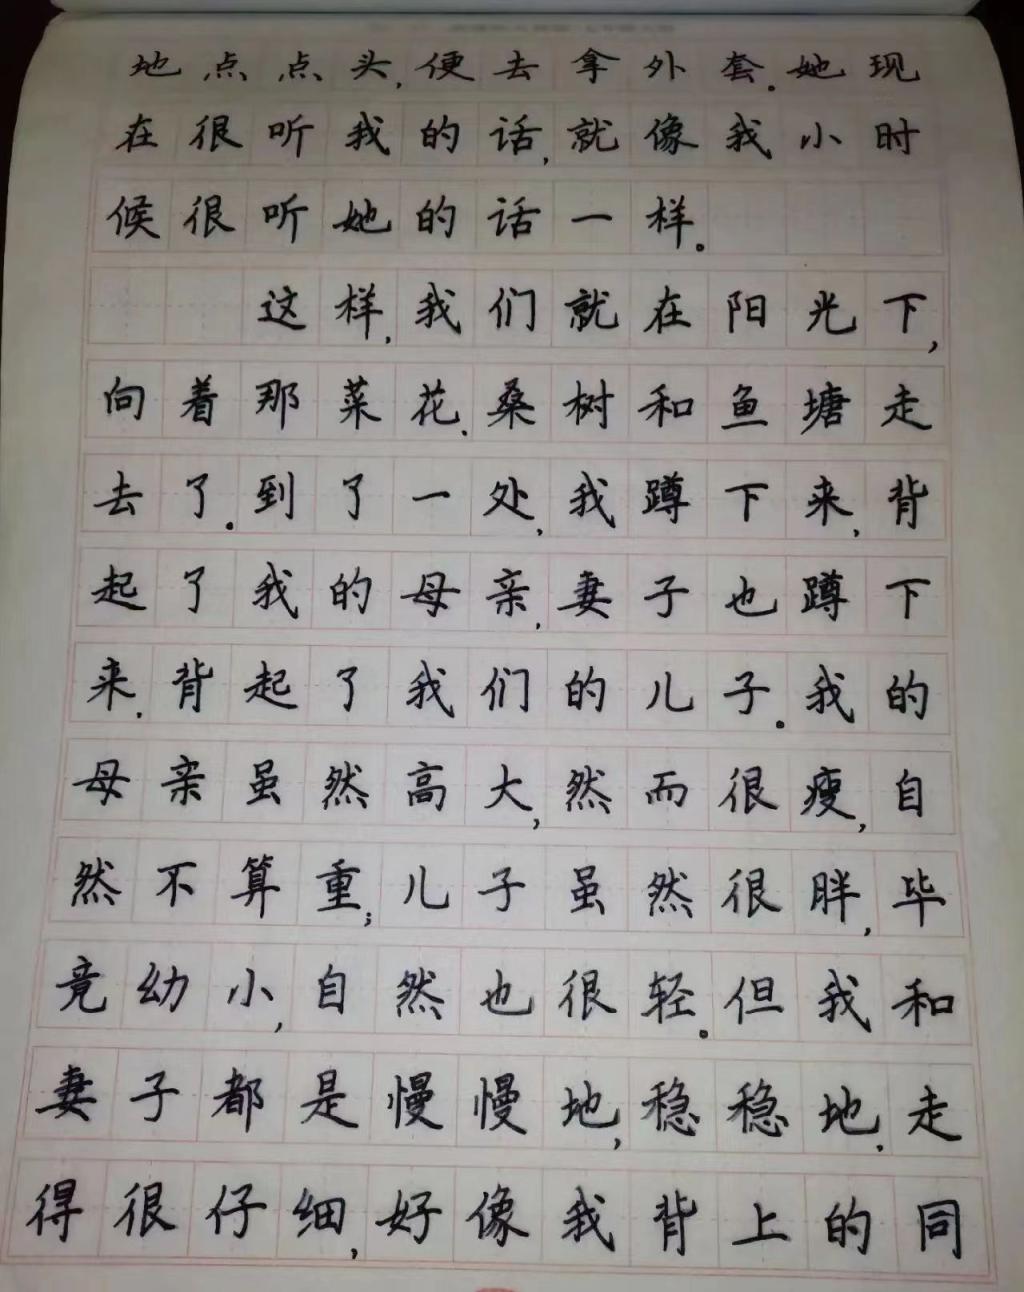 地点点头,便去拿外套。她现
在很听我的话,就像我小时
候很听她的话一样。
这样,我们就在阳光下,
向着那菜花、桑树和鱼塘走
去了。到了一处,我蹲下来,背
起了我的母亲,妻子也蹲下
来,背起了我们的儿子。我的
母亲虽然高大,然而很瘦,自
然不算重;儿子虽然很胖,毕
竟幼小,自然也很轻。但我和
妻子都是慢慢地,稳稳地,走
得很仔细,好像我背上的同